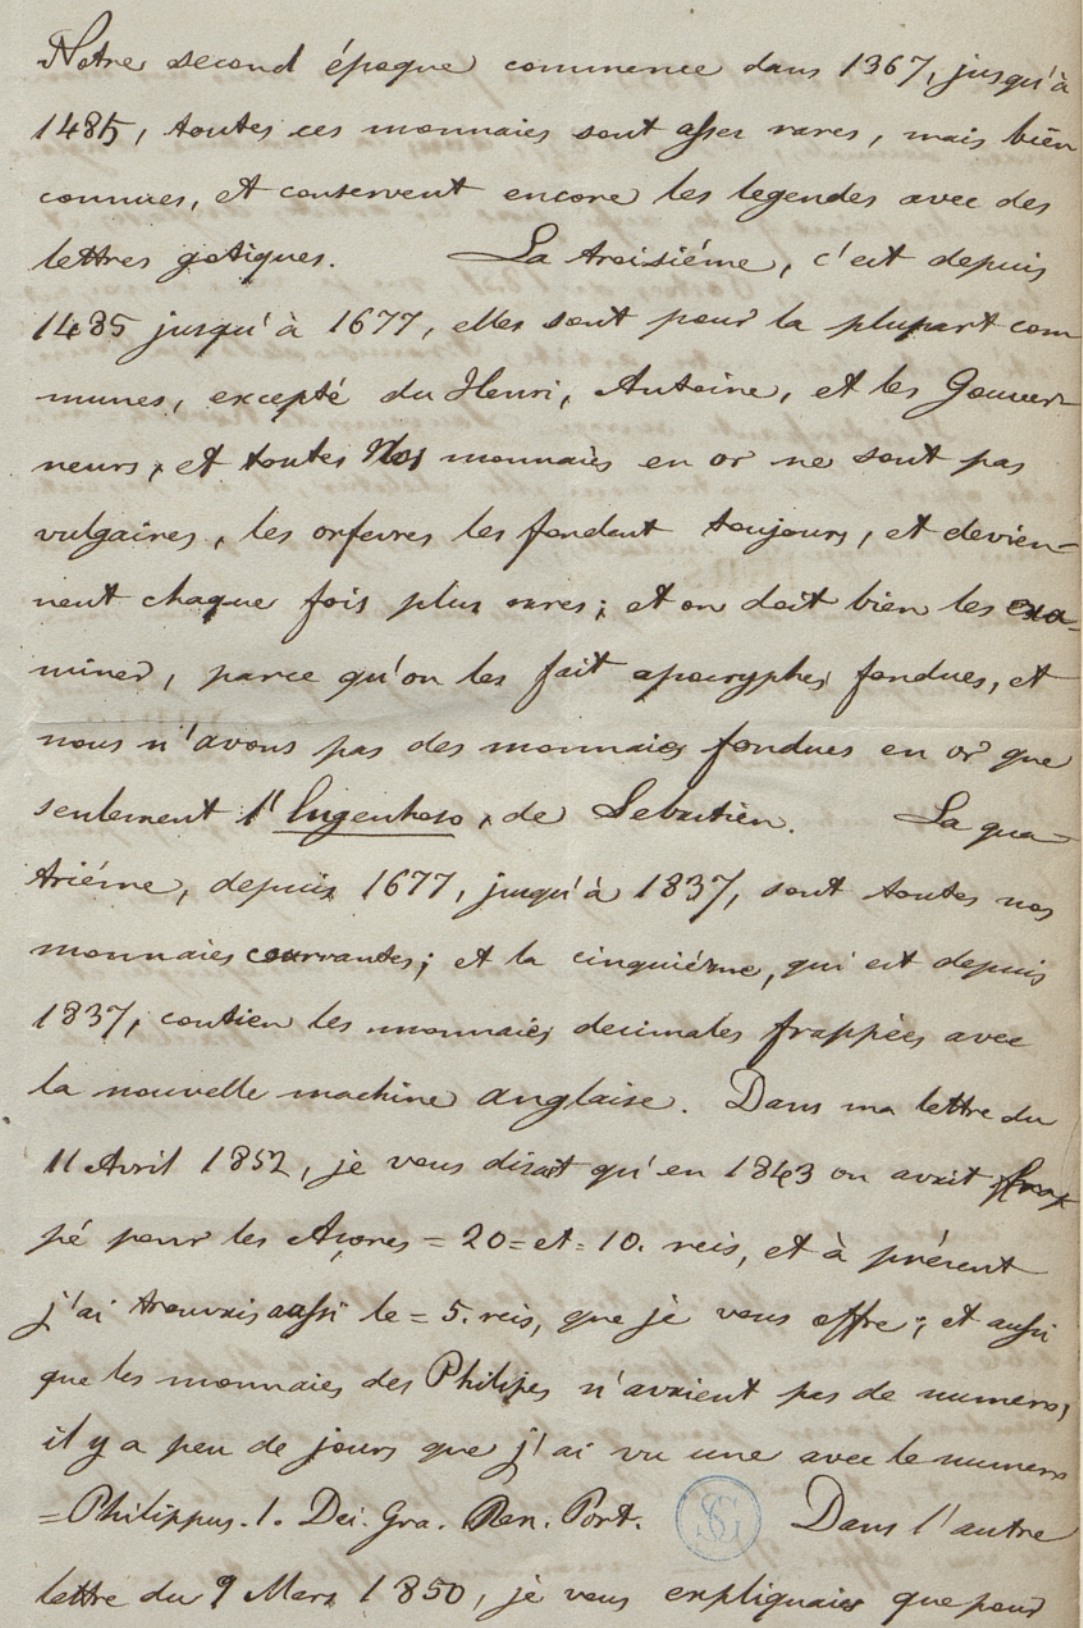 Notre second époque commence dans 1367, jusqu'à
1485, toutes ces monnaies sont asses rares, mais bien
connues, et conservent encore les legendes avec des
lettres gotiques. La troisiéme, c'est depuis
1485 jusqu'à 1677, elles sont pour la plupart com
munes, excepté du Henri, Antoine, et les Gouver-
neurs, et toutes Nos monnaies en or ne sont pas
vulgaires, les orfevres les fondent toujours, et devien-
nent chaque fois plus rares; et on doit bien les exa-
miner, parce qu'on les fait apocryphes fondues, et
nous n'avons pas des monnaies fondues en or que
seulement l'Engenhoso, de Sebastien. La qua-
triéme, depuis 1677, jusqu'à 1837, sont toutes nos
monnaies courrantes; et la cinquiéme, qui est depuis
1837, contien les monnaies decimales frappées avec
la nouvelle machine anglaise. Dans ma lettre du
11 Avril 1852, je vous disait qu'en 1843 on avait frap
pé pour les Açores = 20 = et = 10. reis, et à présent
j'ai trouvais aussi le = 5. reis, que je vous offre; et aussi
que les monnaies des Philipes n'avaient pas de numero,
il y a peu de jours que j'ai vu une avec le numero
= Philippus. I. Dei. Gra. Rex. Port. SG Dans l'autre
lettre du 9 Mars 1850, je vous expliquaies que pour